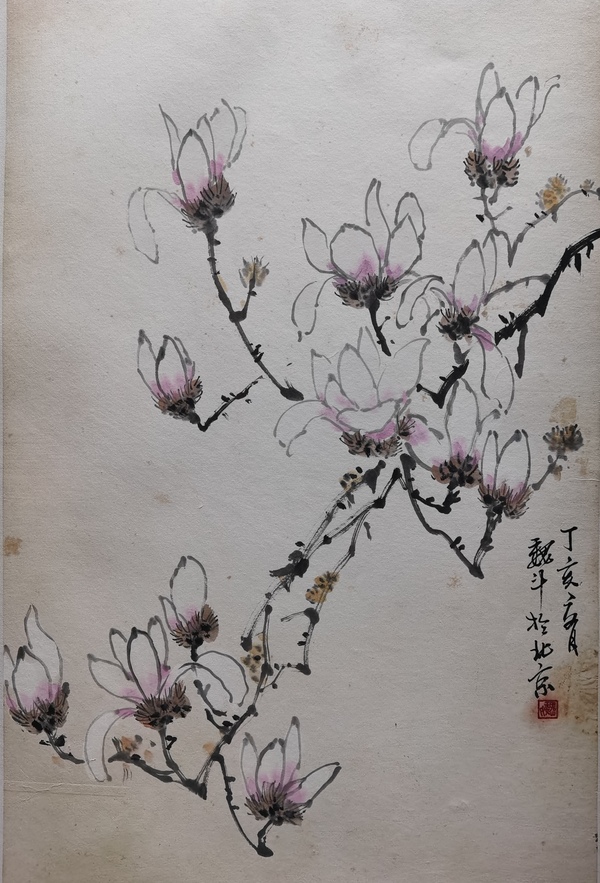 丁亥六月
魏斗於北京